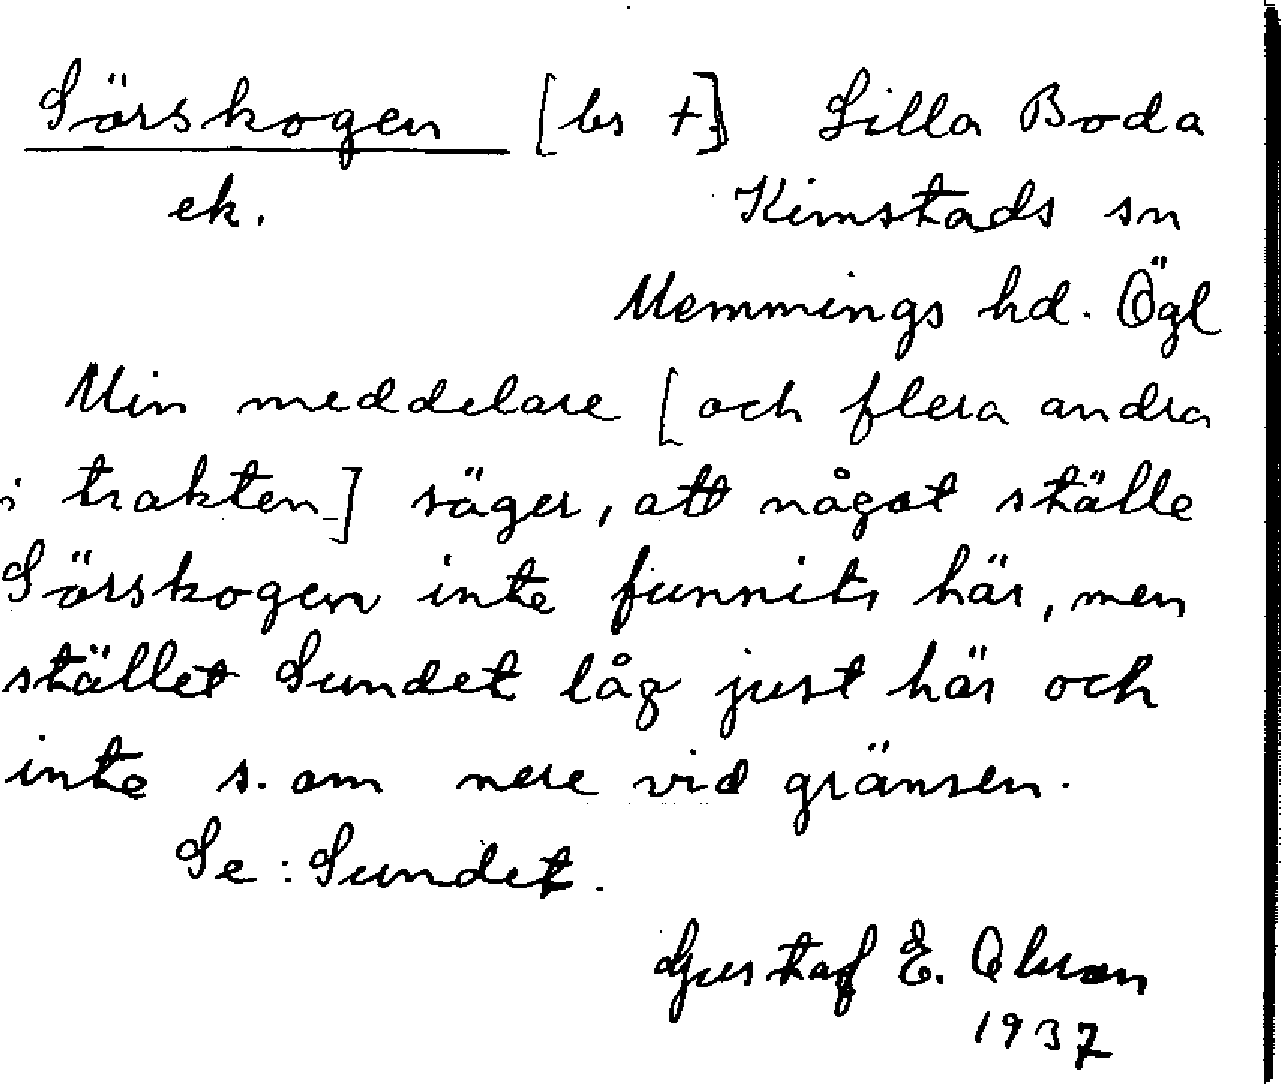 Sörskogen [bs +] Lilla Boda
ek. Kimstads sn
Memmings hd. Ögl
Min meddelare [och flera andra
i trakten] säger, att något ställe
Sörskogen inte funnits här, men
stället Sundet låg just här och
inte s. om nere vid gränsen.
Se: Sundet.
Gustaf E. Olsson
1937